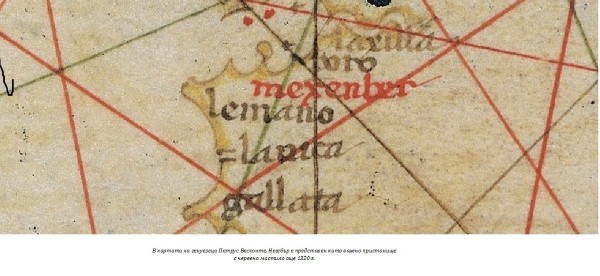 mexenber
lemano
gallata
В картата на генуезеца Петрус Весконте, Несебър е представен като важно пристанище
с червено мастило още 1320 г.